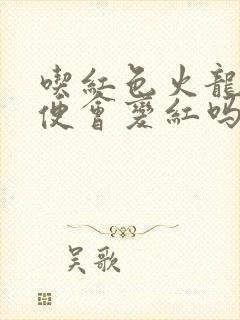 喫紅色火龍
便會變紅嗎
吴歌